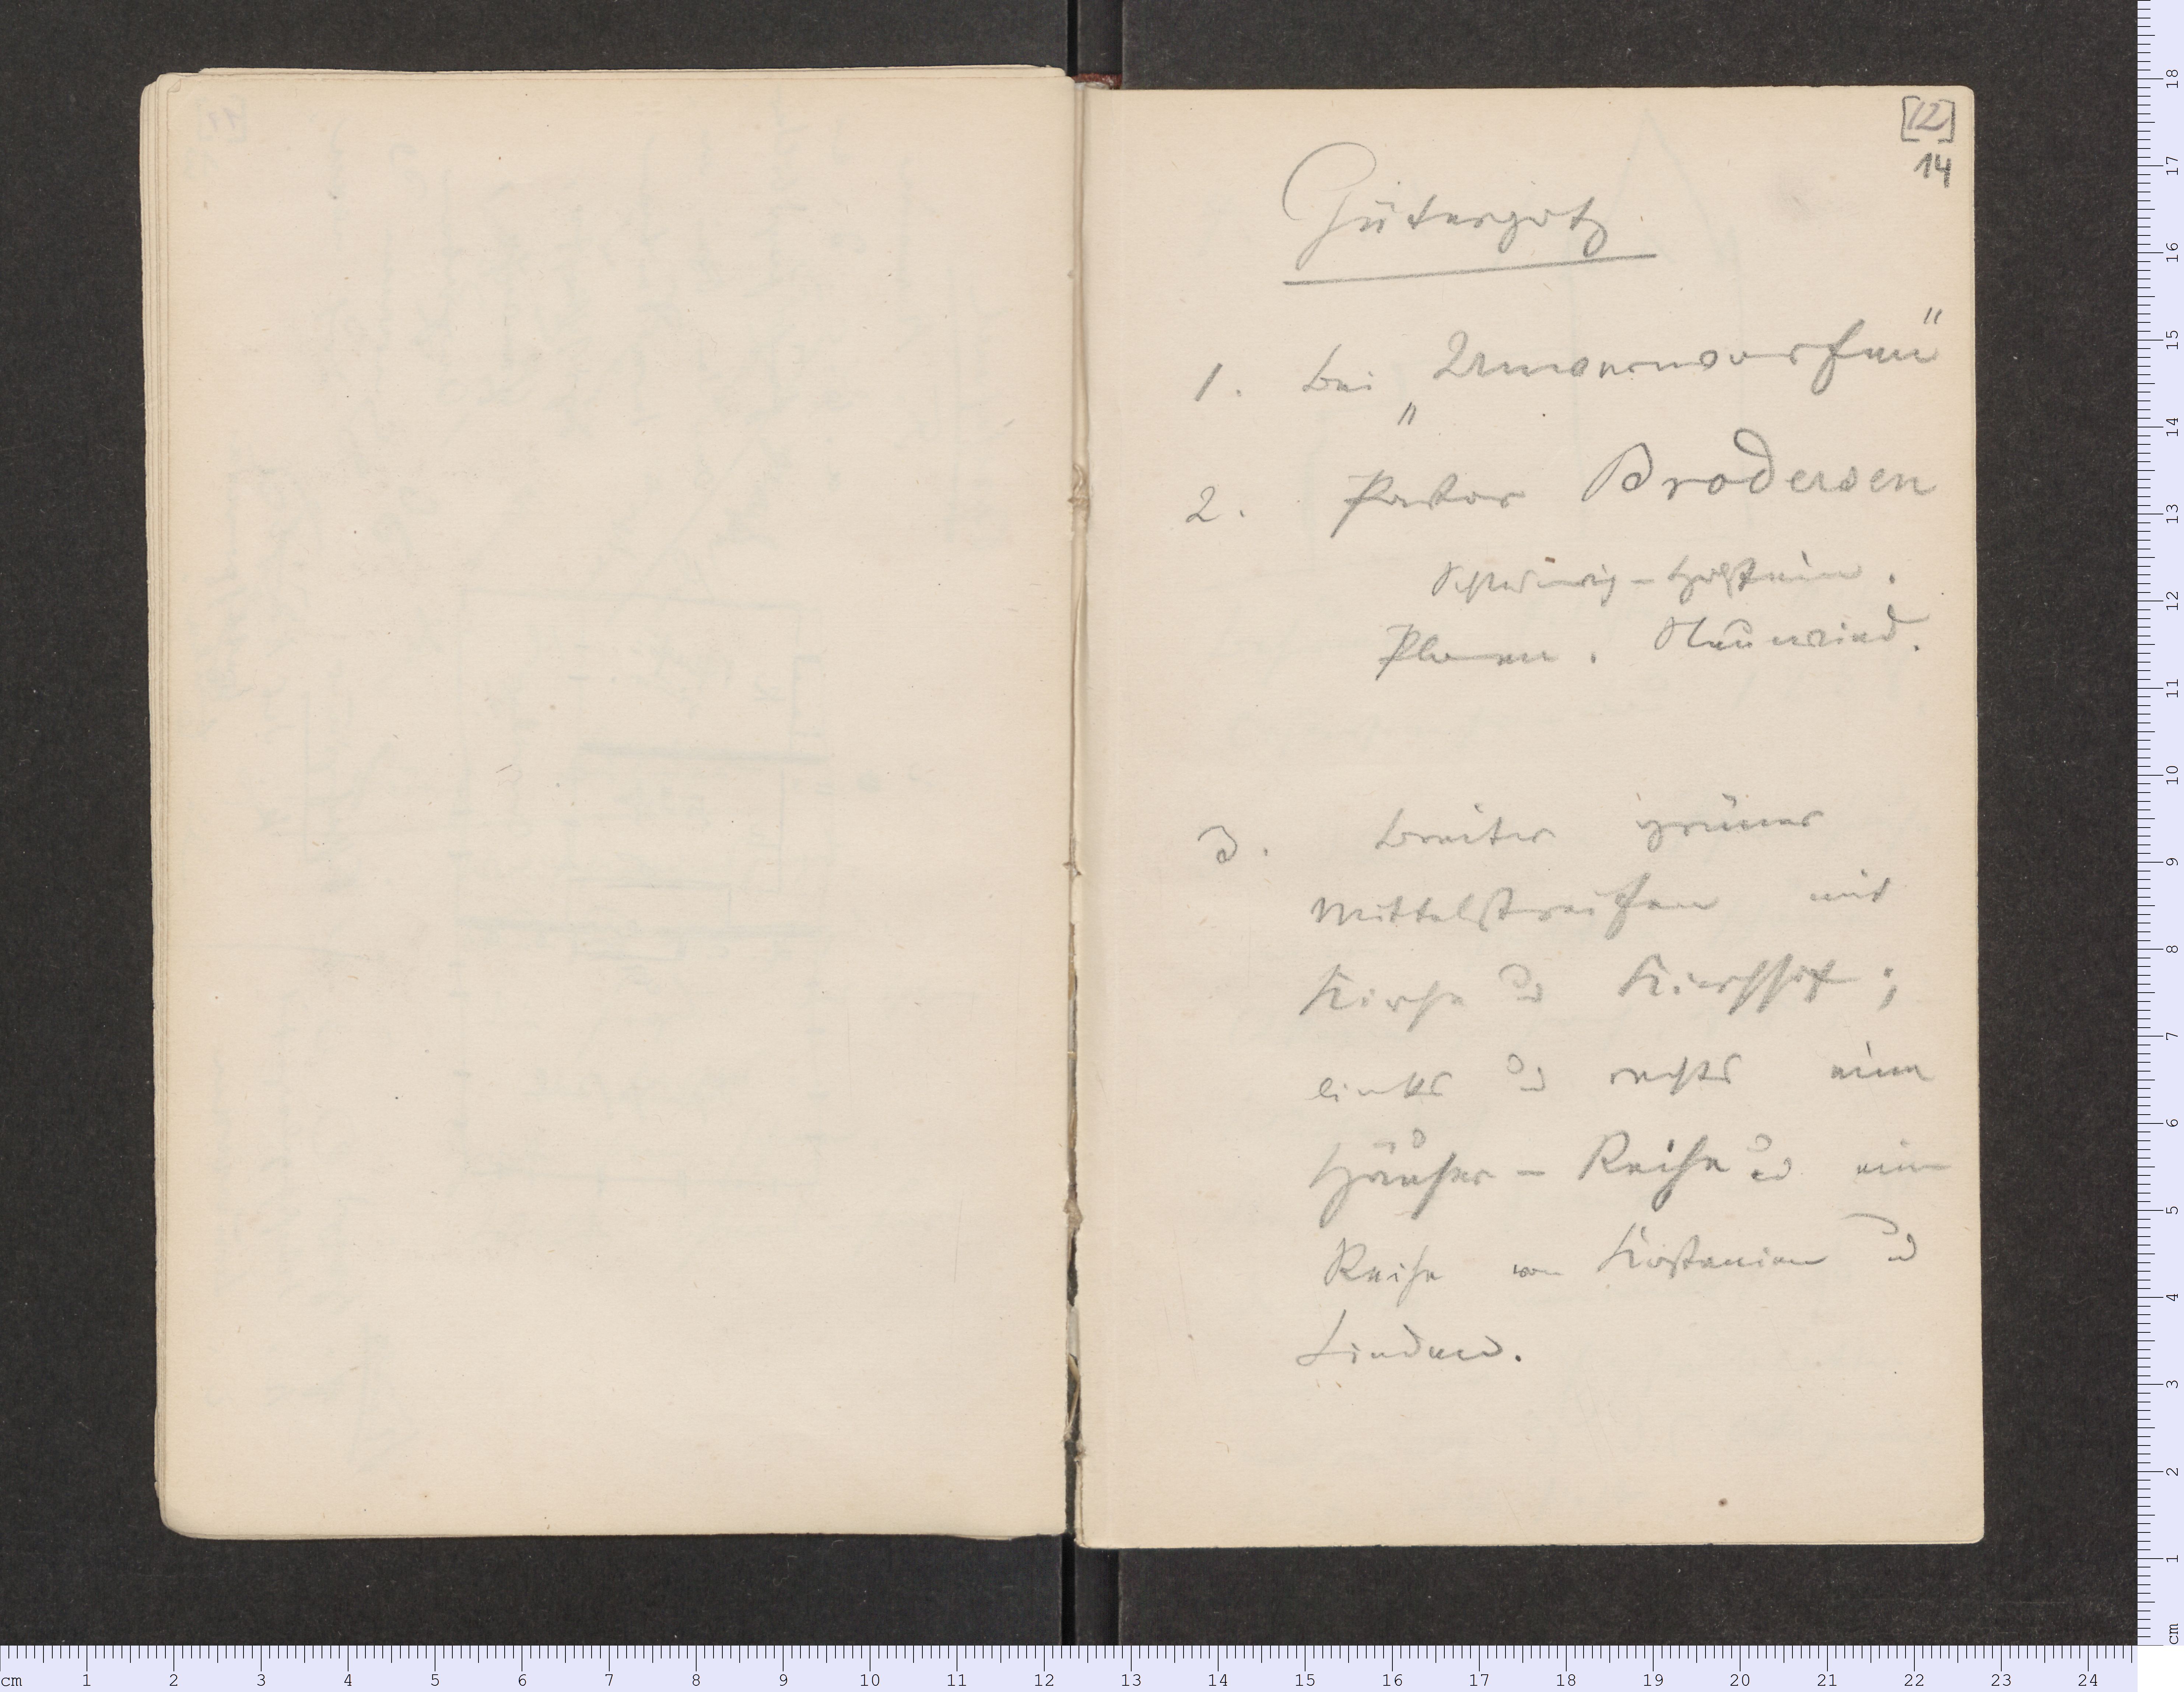 [12]
14
Gütergotz.
1. bei
2. Pastor Brodersen
Schleswig-Holstein.
3. breiter grüner
Mittelstreifen mit
Kirche und Kirchhof;
links und rechts eine
Häuser-Reihe und eine
Reihe von Kastanien und
Linden.
18
17
16
15
14
13
12
11
10
9
8
7
6
5
4
3
2
1
cm
cm 1 2 3 4 5 6 7 8 9 10 11 12 13 14 15 16 17 18 19 20 21 22 23 24